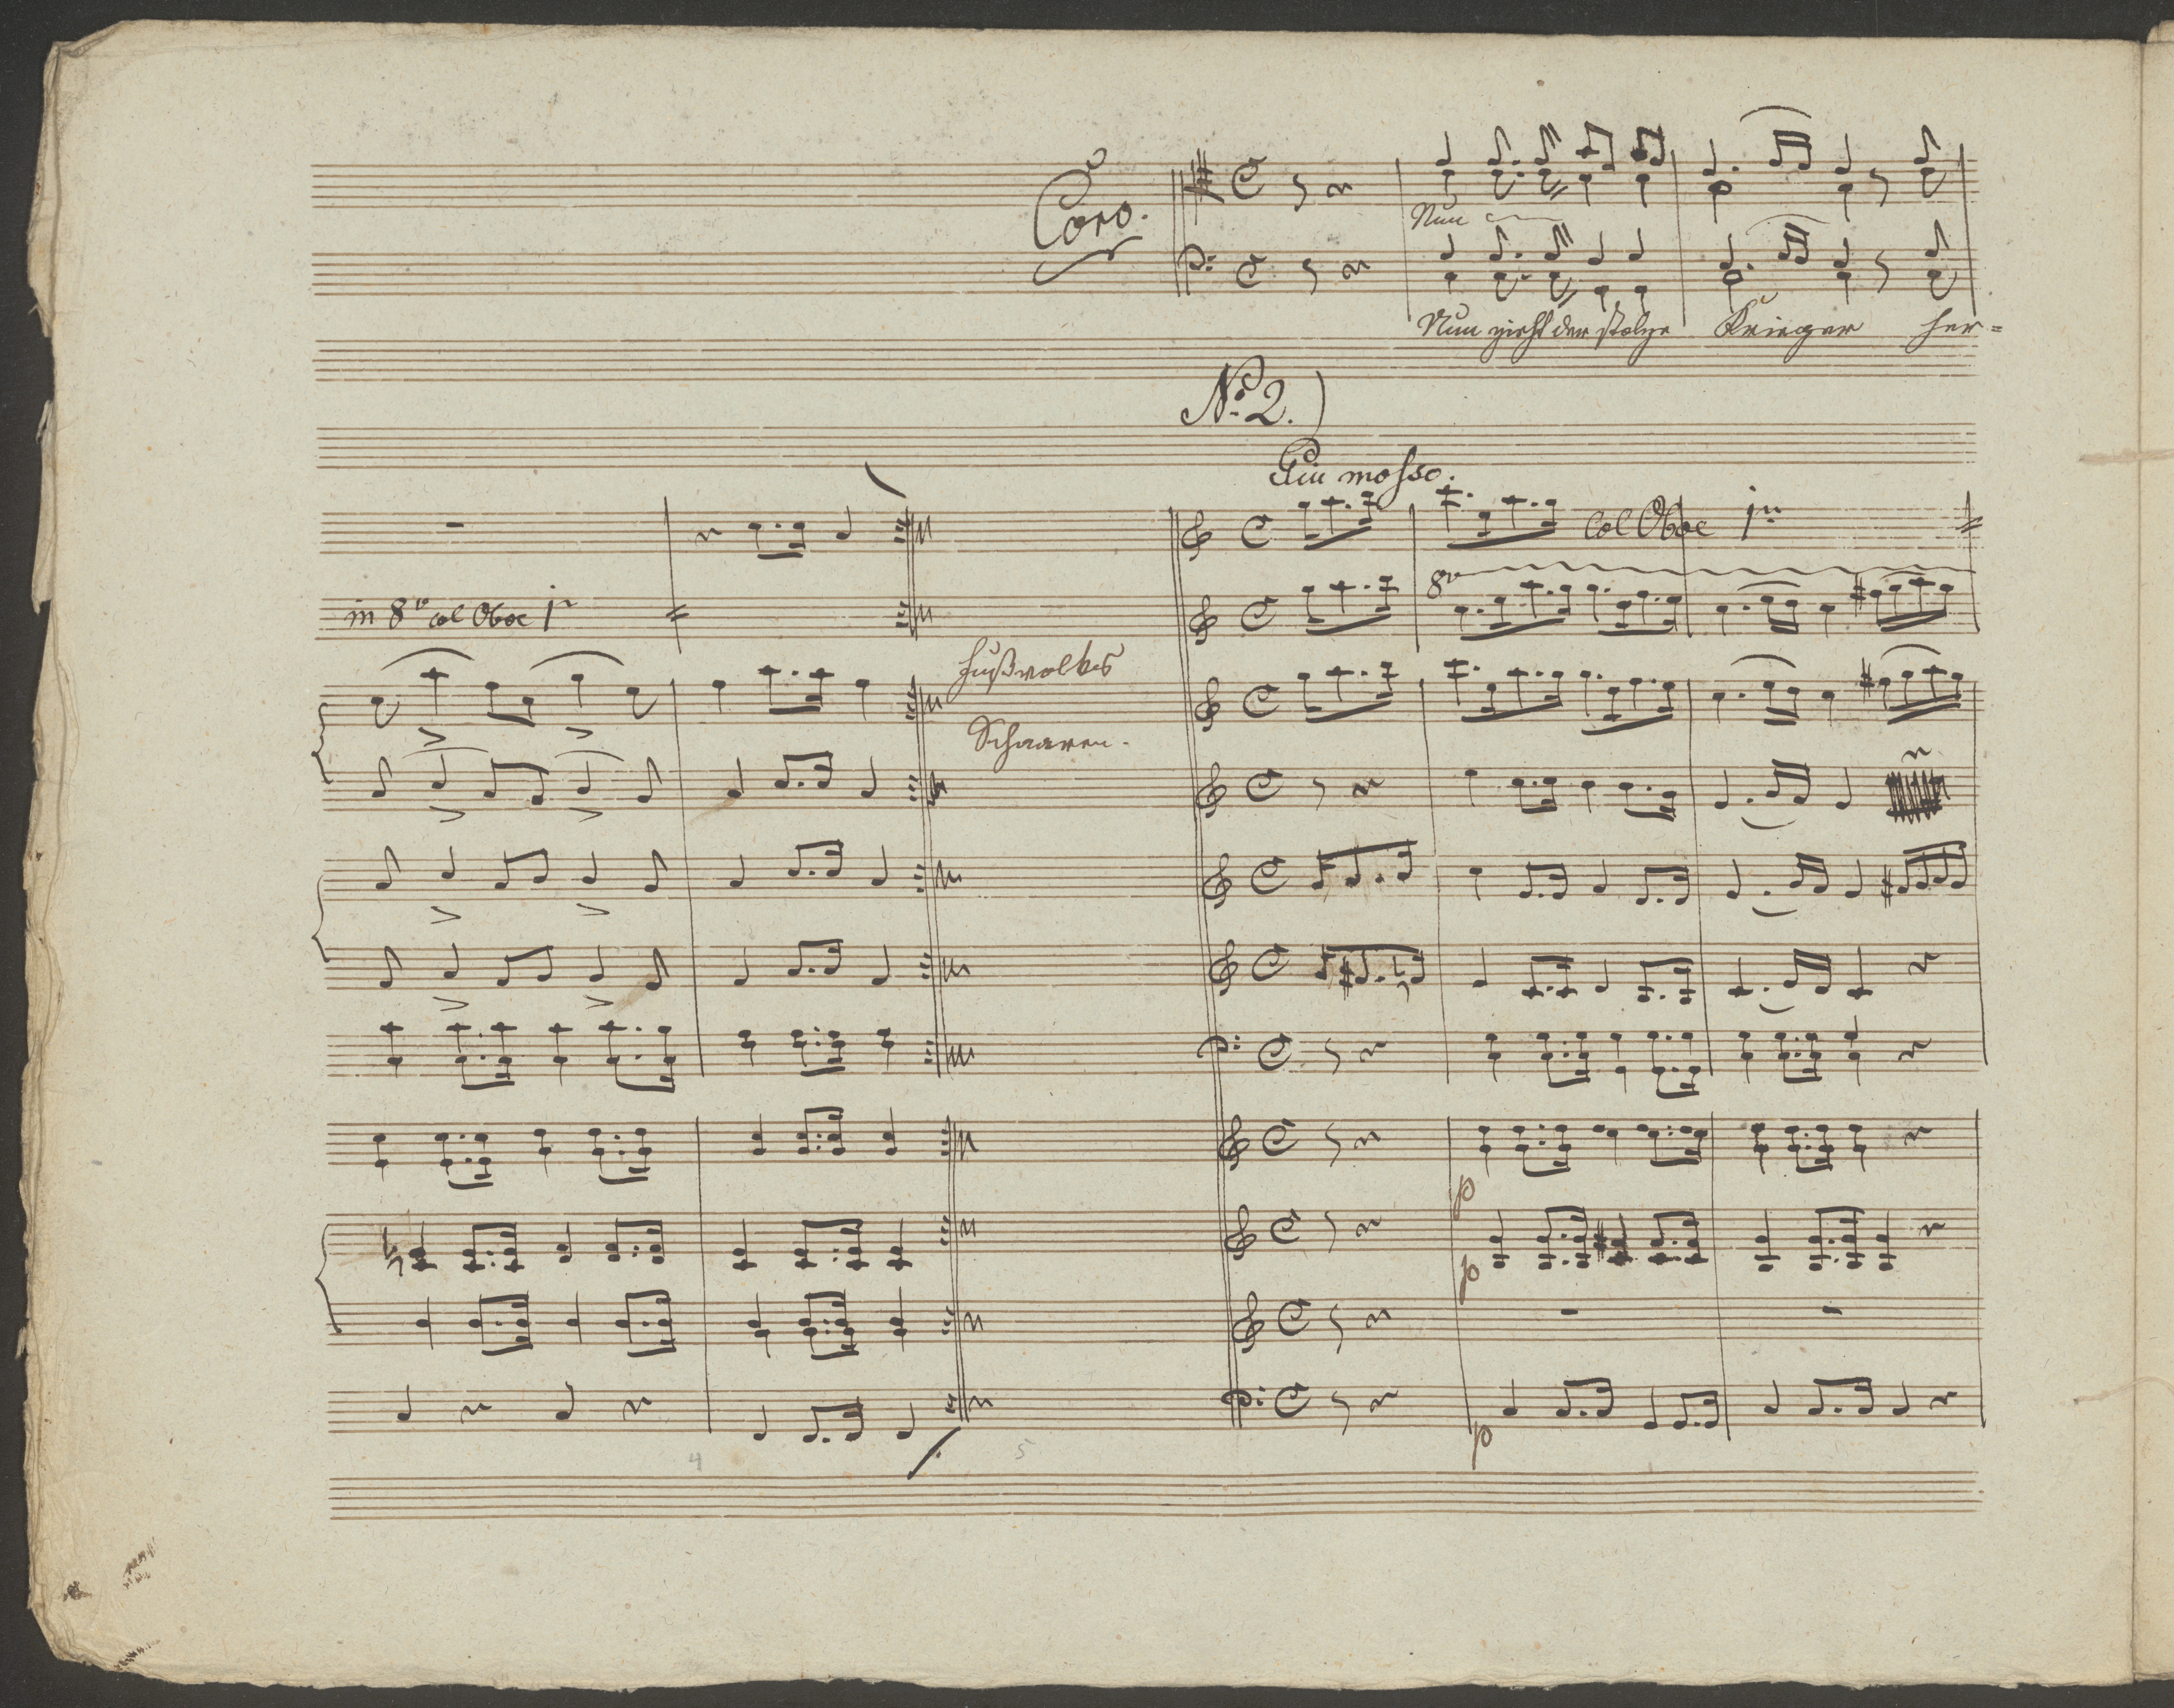 Coro.
Nun
Nun zieht der stolze Krieger her=
No. 2.
Piu mosso.
Col Oboe 1mo
8va
in 8va col Oboe 1mo
Fußvolkes
Schaaren.
p
p
p
4
5